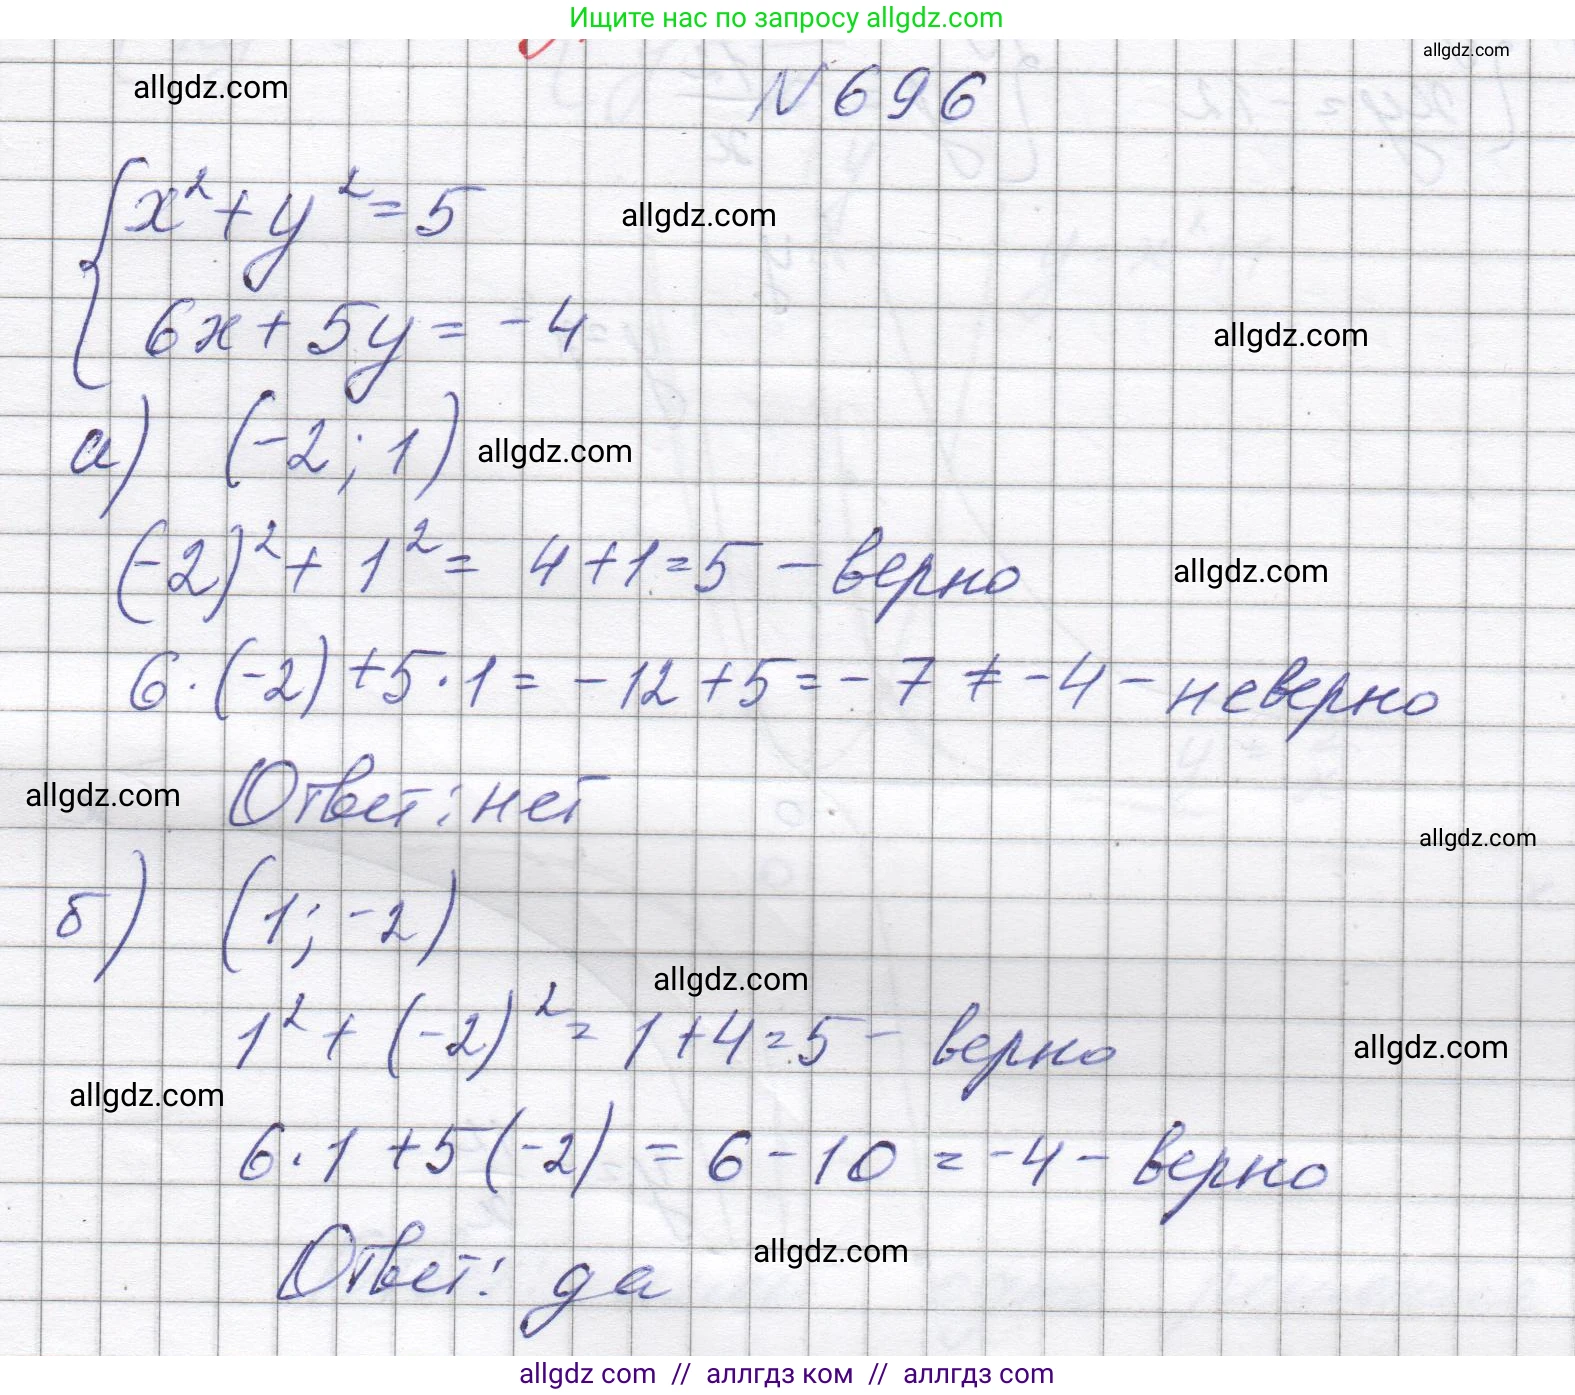 Ищите нас по запросу allgdz.com
allgdz.com
allgdz.com
N 696
x² + y² = 5
allgdz.com
6x + 5y = -4
allgdz.com
а) (-2; 1)
allgdz.com
(-2)² + 1² = 4 + 1 = 5 - верно
allgdz.com
6 · (-2) + 5 · 1 = -12 + 5 = -7 ≠ -4 - неверно
allgdz.com
Ответ: нет
allgdz.com
б) (1; -2)
allgdz.com
1² + (-2)² = 1 + 4 = 5 - верно
allgdz.com
allgdz.com
6 · 1 + 5 (-2) = 6 - 10 = -4 - верно
Ответ: да
allgdz.com
allgdz com // аллгдз ком // аллгдз com